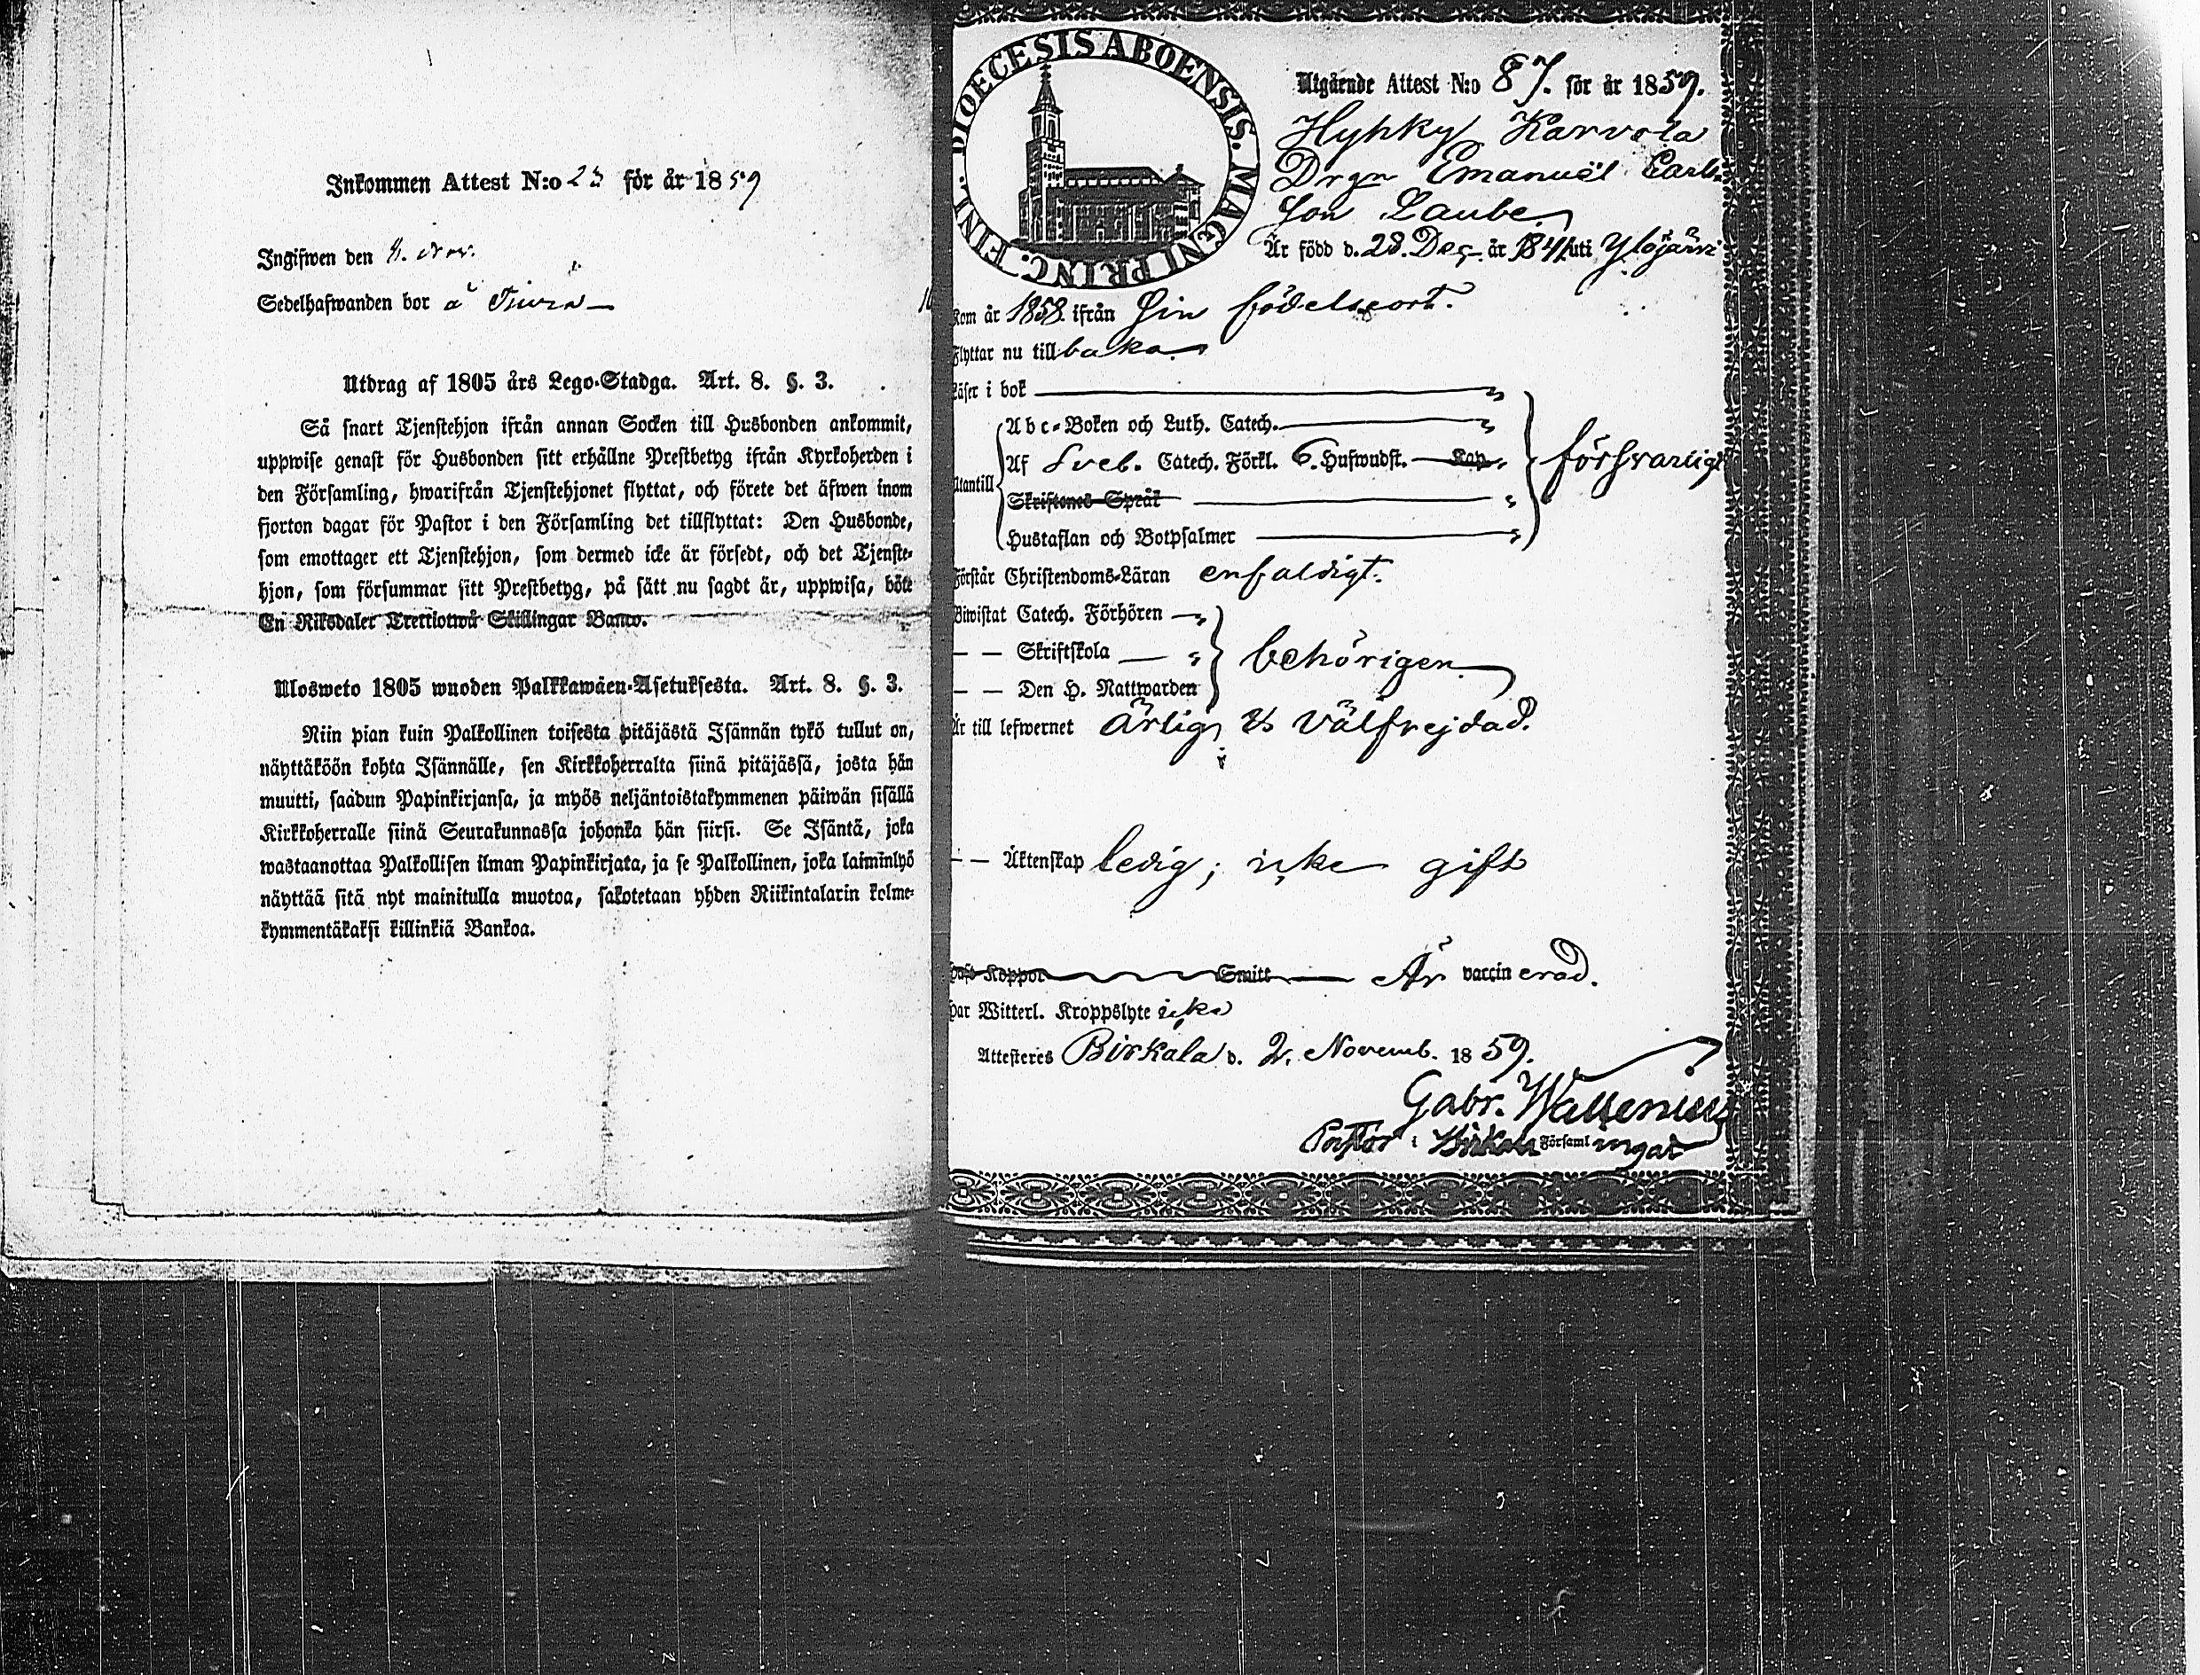 Inkommen Attest N:o 23 för år 1859
Ingifwen den 8. Nov.
Sedelhafwanden bor å
Utdrag af 1805 års Lego-Stadga. Art. 8. §. 3.
Så snart Tjenstehjon ifrån annan Socken till Husbonden ankommit,
uppwise genast för Husbonden sitt erhållne Prestbetyg ifrån Kyrkoherden i
den Församling, hwarifrån Tjenstehjonet flyttat, och förete det äfwen inom
fjorton dagar för Pastor i den Församling det tillflyttat: Den Husbonde,
som emottager ett Tjenstehjon, som dermed icke är försedt, och det Tjenste-
hjon, som försummar sitt Prestbetyg, på sätt nu sagdt är, uppwisa, böte
En Riksdaler Trettiotwå Skillingar Banco.
Ulosweto 1805 wuoden Palkkawäen-Asetuksesta. Art. 8. §. 3.
Niin pian kuin Palkollinen toisesta pitäjästä Isännän tykö tullut on,
näyttäköön kohta Isännälle, sen Kirkkoherralta siinä pitäjässä, josta hän
muutti, saadun Papinkirjansa, ja myös neljäntoistakymmenen päiwän sisällä
Kirkkoherralle siinä Seurakunnassa johonka hän siirsi. Se Isäntä, joka
wastaanottaa Palkollisen ilman Papinkirjata, ja se Palkollinen, joka laiminlyö
näyttää sitä nyt mainitulla muotoa, sakotetaan yhden Riikintalarin kolme-
kymmentäkaksi killinkiä Bankoa.
DIOECESIS ABOENSIS. MAGNI PRINC. FINL.
Utgående Attest N:o 87. för år 1859.
Hyhky Karvola
Drgn Emanuël Carls-
son Laube
Är född d. 28. Dec. år 1841 uti Ylöjärvi
kom år 1858. ifrån Sin födelseort.
Flyttar nu tillbaka.
Läser i bok
Abc-Boken och Luth. Catech.
Utantill Af Sveb. Catech. Förkl. 6. Hufwudst. Kap. försvarligt
Skriftenes Språk
Hustaflan och Botpsalmer
Förstår Christendoms-Läran enfaldigt.
Biwistat Catech. Förhören
— — Skriftskola behörigen
— — Den H. Nattwarden
Är till lefwernet Ärlig & välfrejdad.
— — Äktenskap ledig; icke gift
haft Koppor Smitt Är vaccinerad.
har Witterl. Kroppslyte icke
Attesteres Birkala d. 2. Novemb. 1859.
Gabr. Wallenius
Pastor i Birkala Församlingar